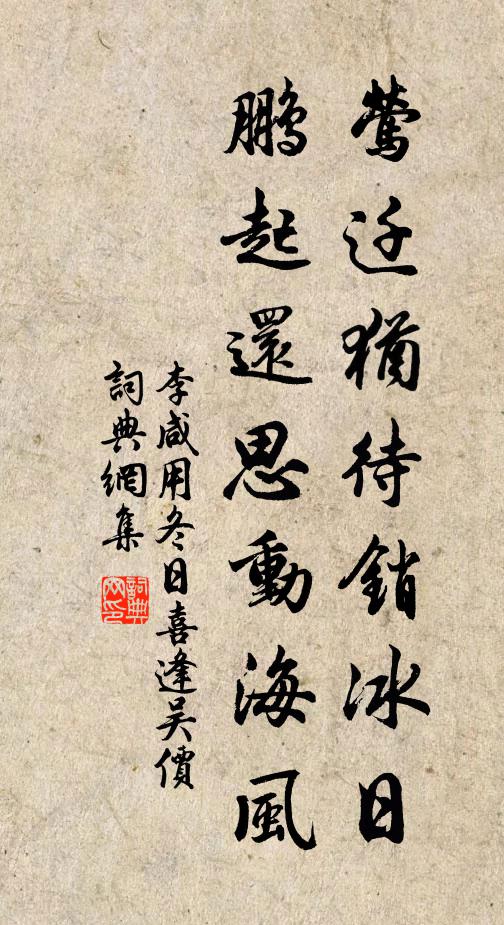 鶯迁猶待銷冰日
鵬起還思動海風
李咸用冬日喜逢吴價
詞典網集
詞典
网印